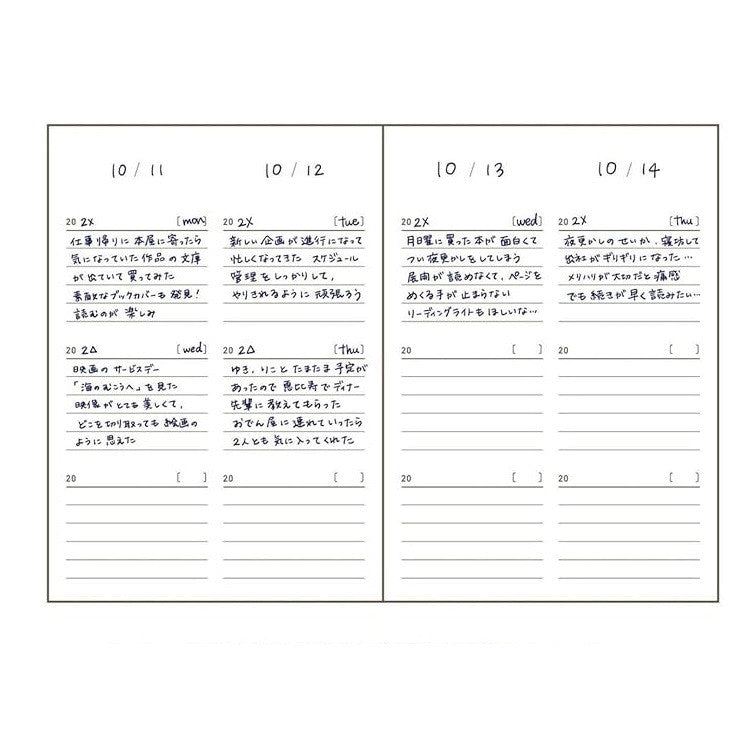 10 / 11
20 2X [mon]
仕事帰りに本屋に寄ったら
気になっていた作品の文庫
が出ていて買ってみた
素敵なブックカバーも発見!
読むのが楽しみ
20 2△ [wed]
映画のサービスデー
「海のむこうへ」を見た
映像がとても美しくて、
どこを切り取っても絵画の
ように思えた
20 [ ]
10 / 12
20 2X [tue]
新しい企画が進行になって
忙しくなってきた スケジュール
管理をしっかりして、
やりきれるように頑張ろう
20 2△ [thu]
ゆき、りこと たまたま予定が
あったので恵比寿でディナー
先輩に教えてもらった
おでん屋に連れていったら
2人とも気に入ってくれた
20 [ ]
10 / 13
20 2X [wed]
月曜に買った本が面白くて
つい夜更かしをしてしまう
展開が読めなくて、ページを
めくる手が止まらない
リーディングライトもほしいな…
20 [ ]
20 [ ]
10 / 14
20 2X [thu]
夜更かしのせいか、寝坊して
出社がギリギリになった…
メリハリが大切だと痛感
でも続きが早く読みたい…
20 [ ]
20 [ ]